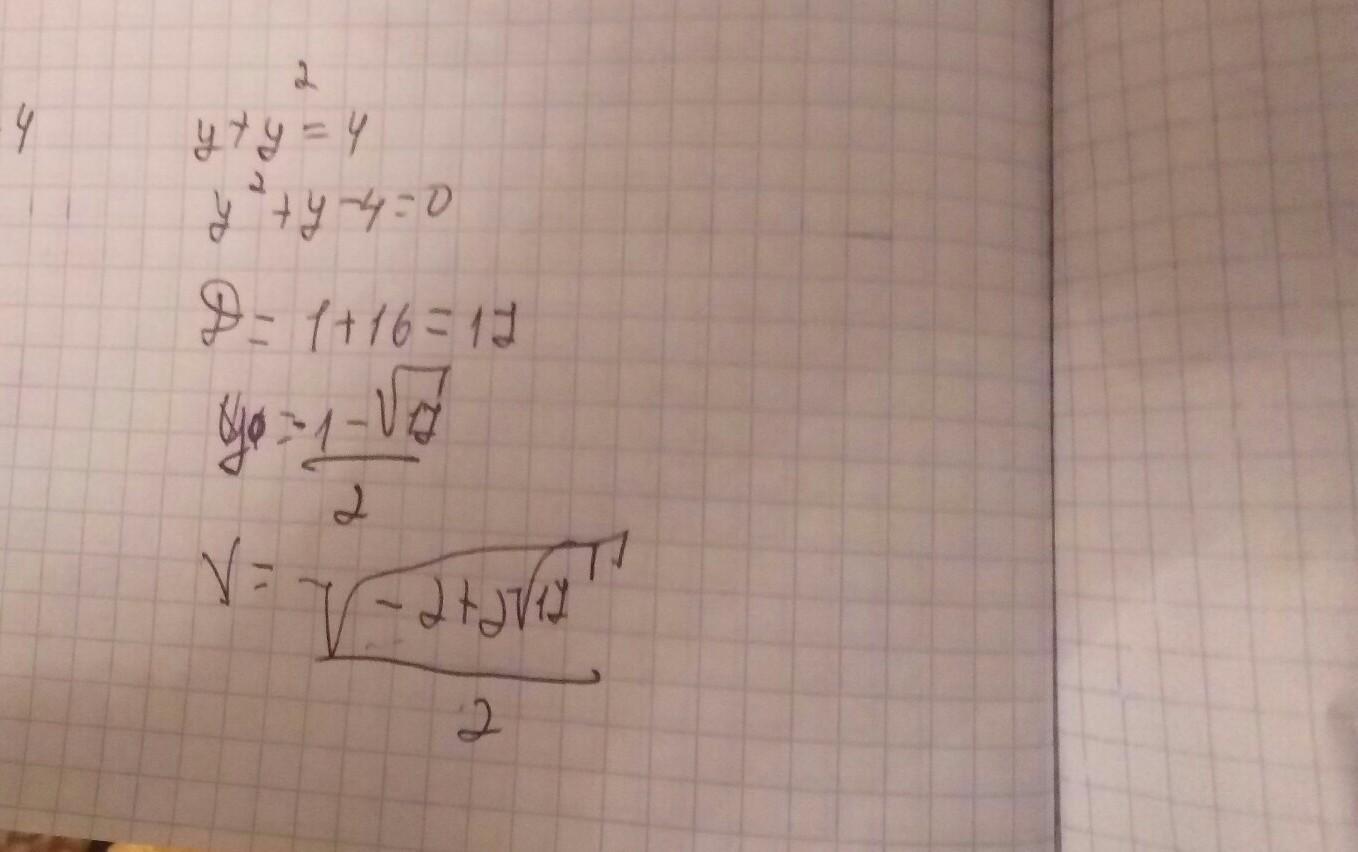 4
y+y² = 4
y²+y-4=0
D= 1+16=17
y = (-1-√17)/2
V= -√(-2+2√17)/2